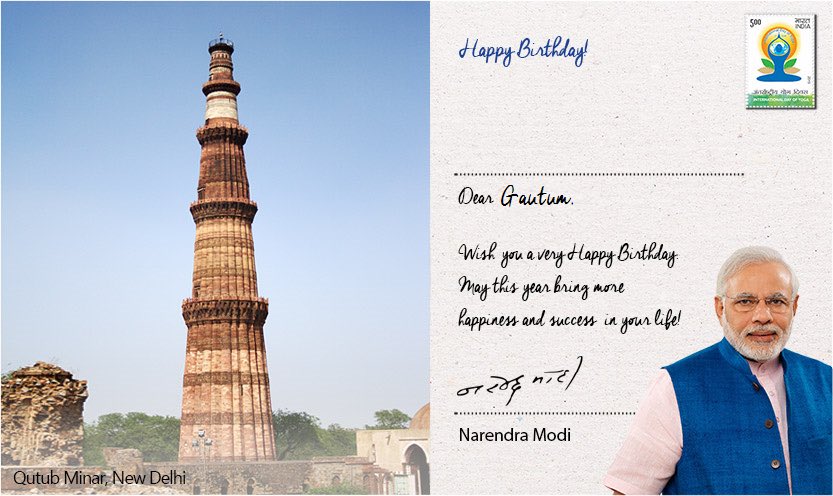 Happy Birthday!
5.00 भारत
INDIA
अन्तर्राष्ट्रीय योग दिवस
INTERNATIONAL DAY OF YOGA
Dear Gautum,
Wish you a very Happy Birthday.
May this year bring more
happiness and success in your life!
नरेन्द्र मोदी
Narendra Modi
Qutub Minar, New Delhi